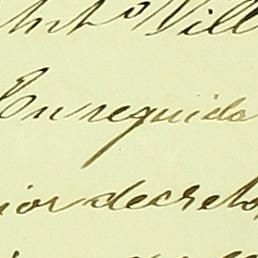 Vill
Enseguida
ior decreto,